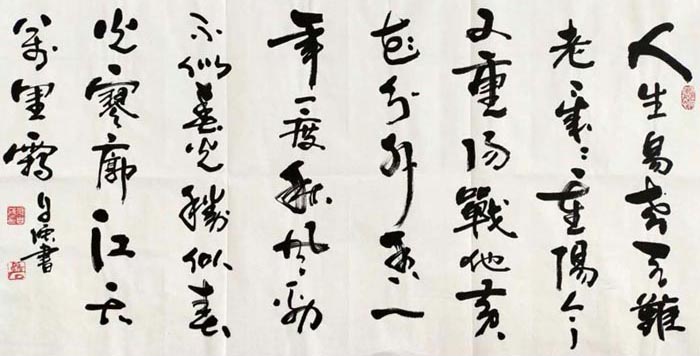 人生易老天難
老歲々重陽今
又重陽戰地黄
花分外香一
年一度秋風勁
不似春光勝似春
光寥廓江天
萬里霜 書